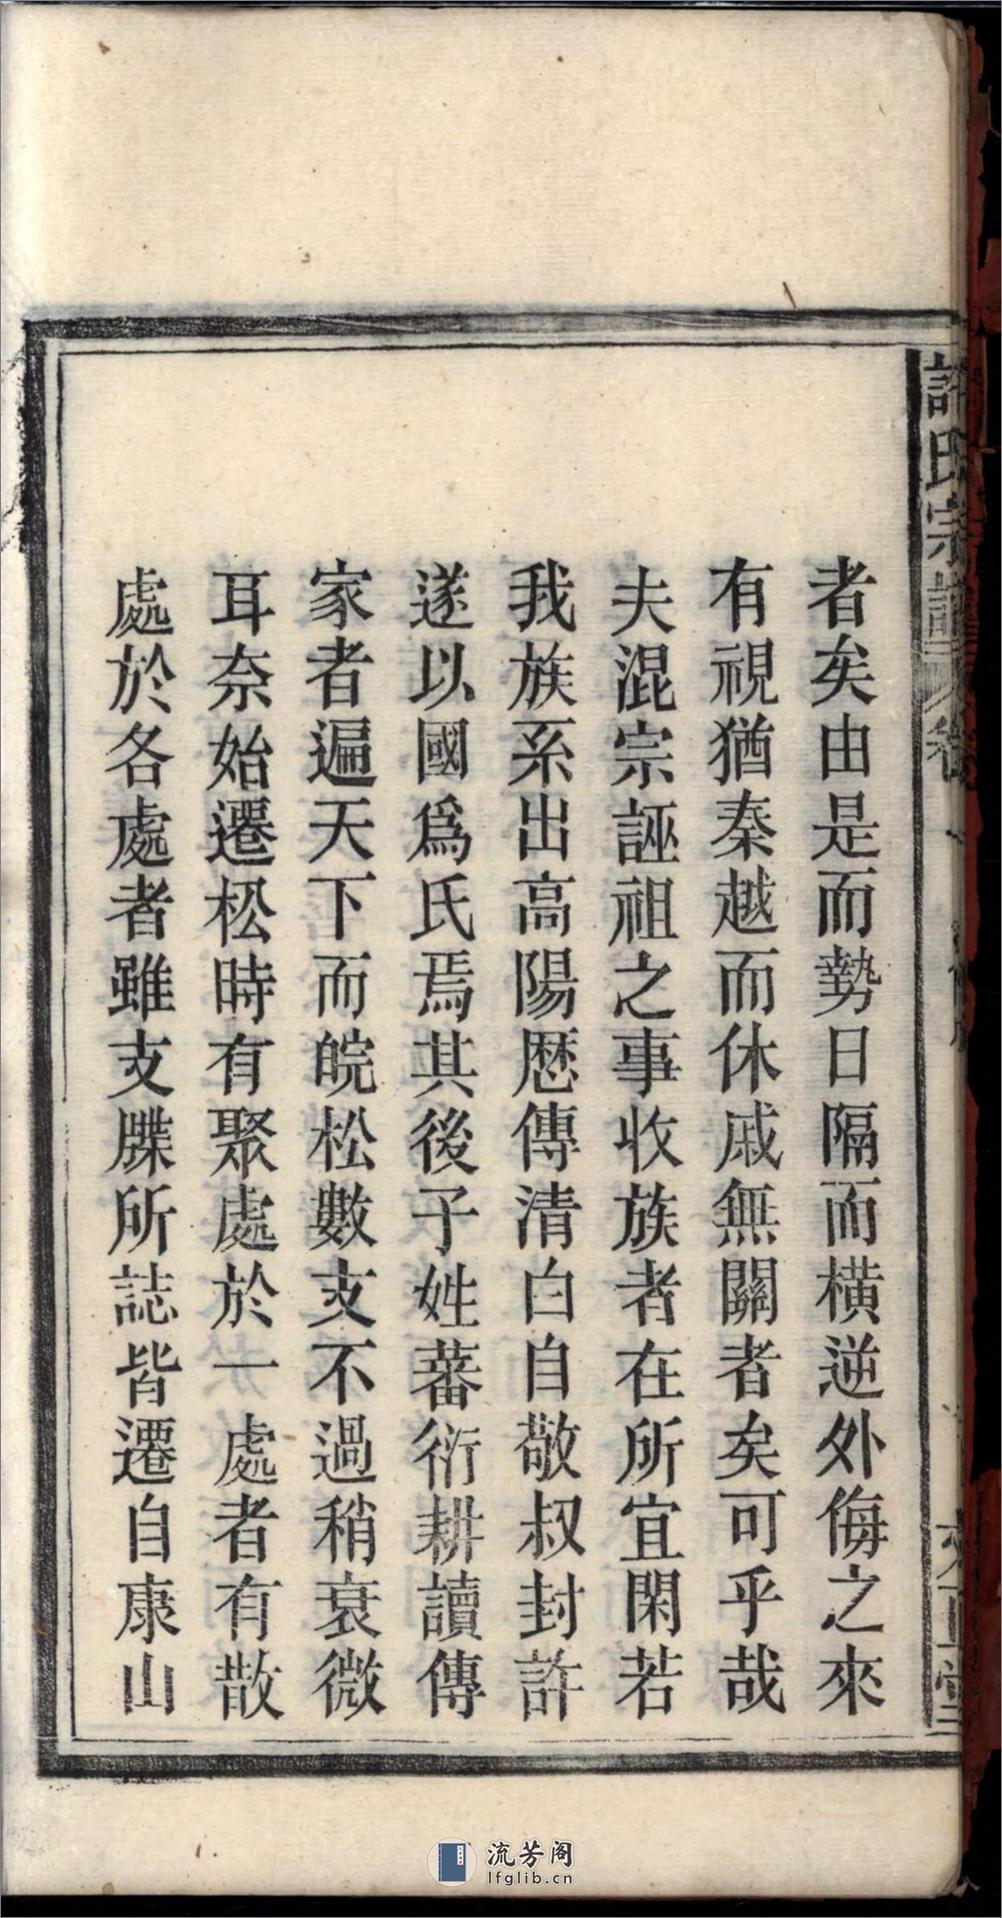 許氏宗譜
卷一
者矣由是而勢日隔而橫逆外侮之來
有視猶秦越而休戚無關者矣可乎哉
夫混宗誣祖之事收族者在所宜閑若
我族系出高陽歷傳清白自敬叔封許
遂以國爲氏焉其後子姓蕃衍耕讀傳
家者遍天下而皖松數支不過稍衰微
耳奈始遷松時有聚處於一處者有散
處於各處者雖支牒所誌皆遷自康山
流芳阁
lfglib.cn